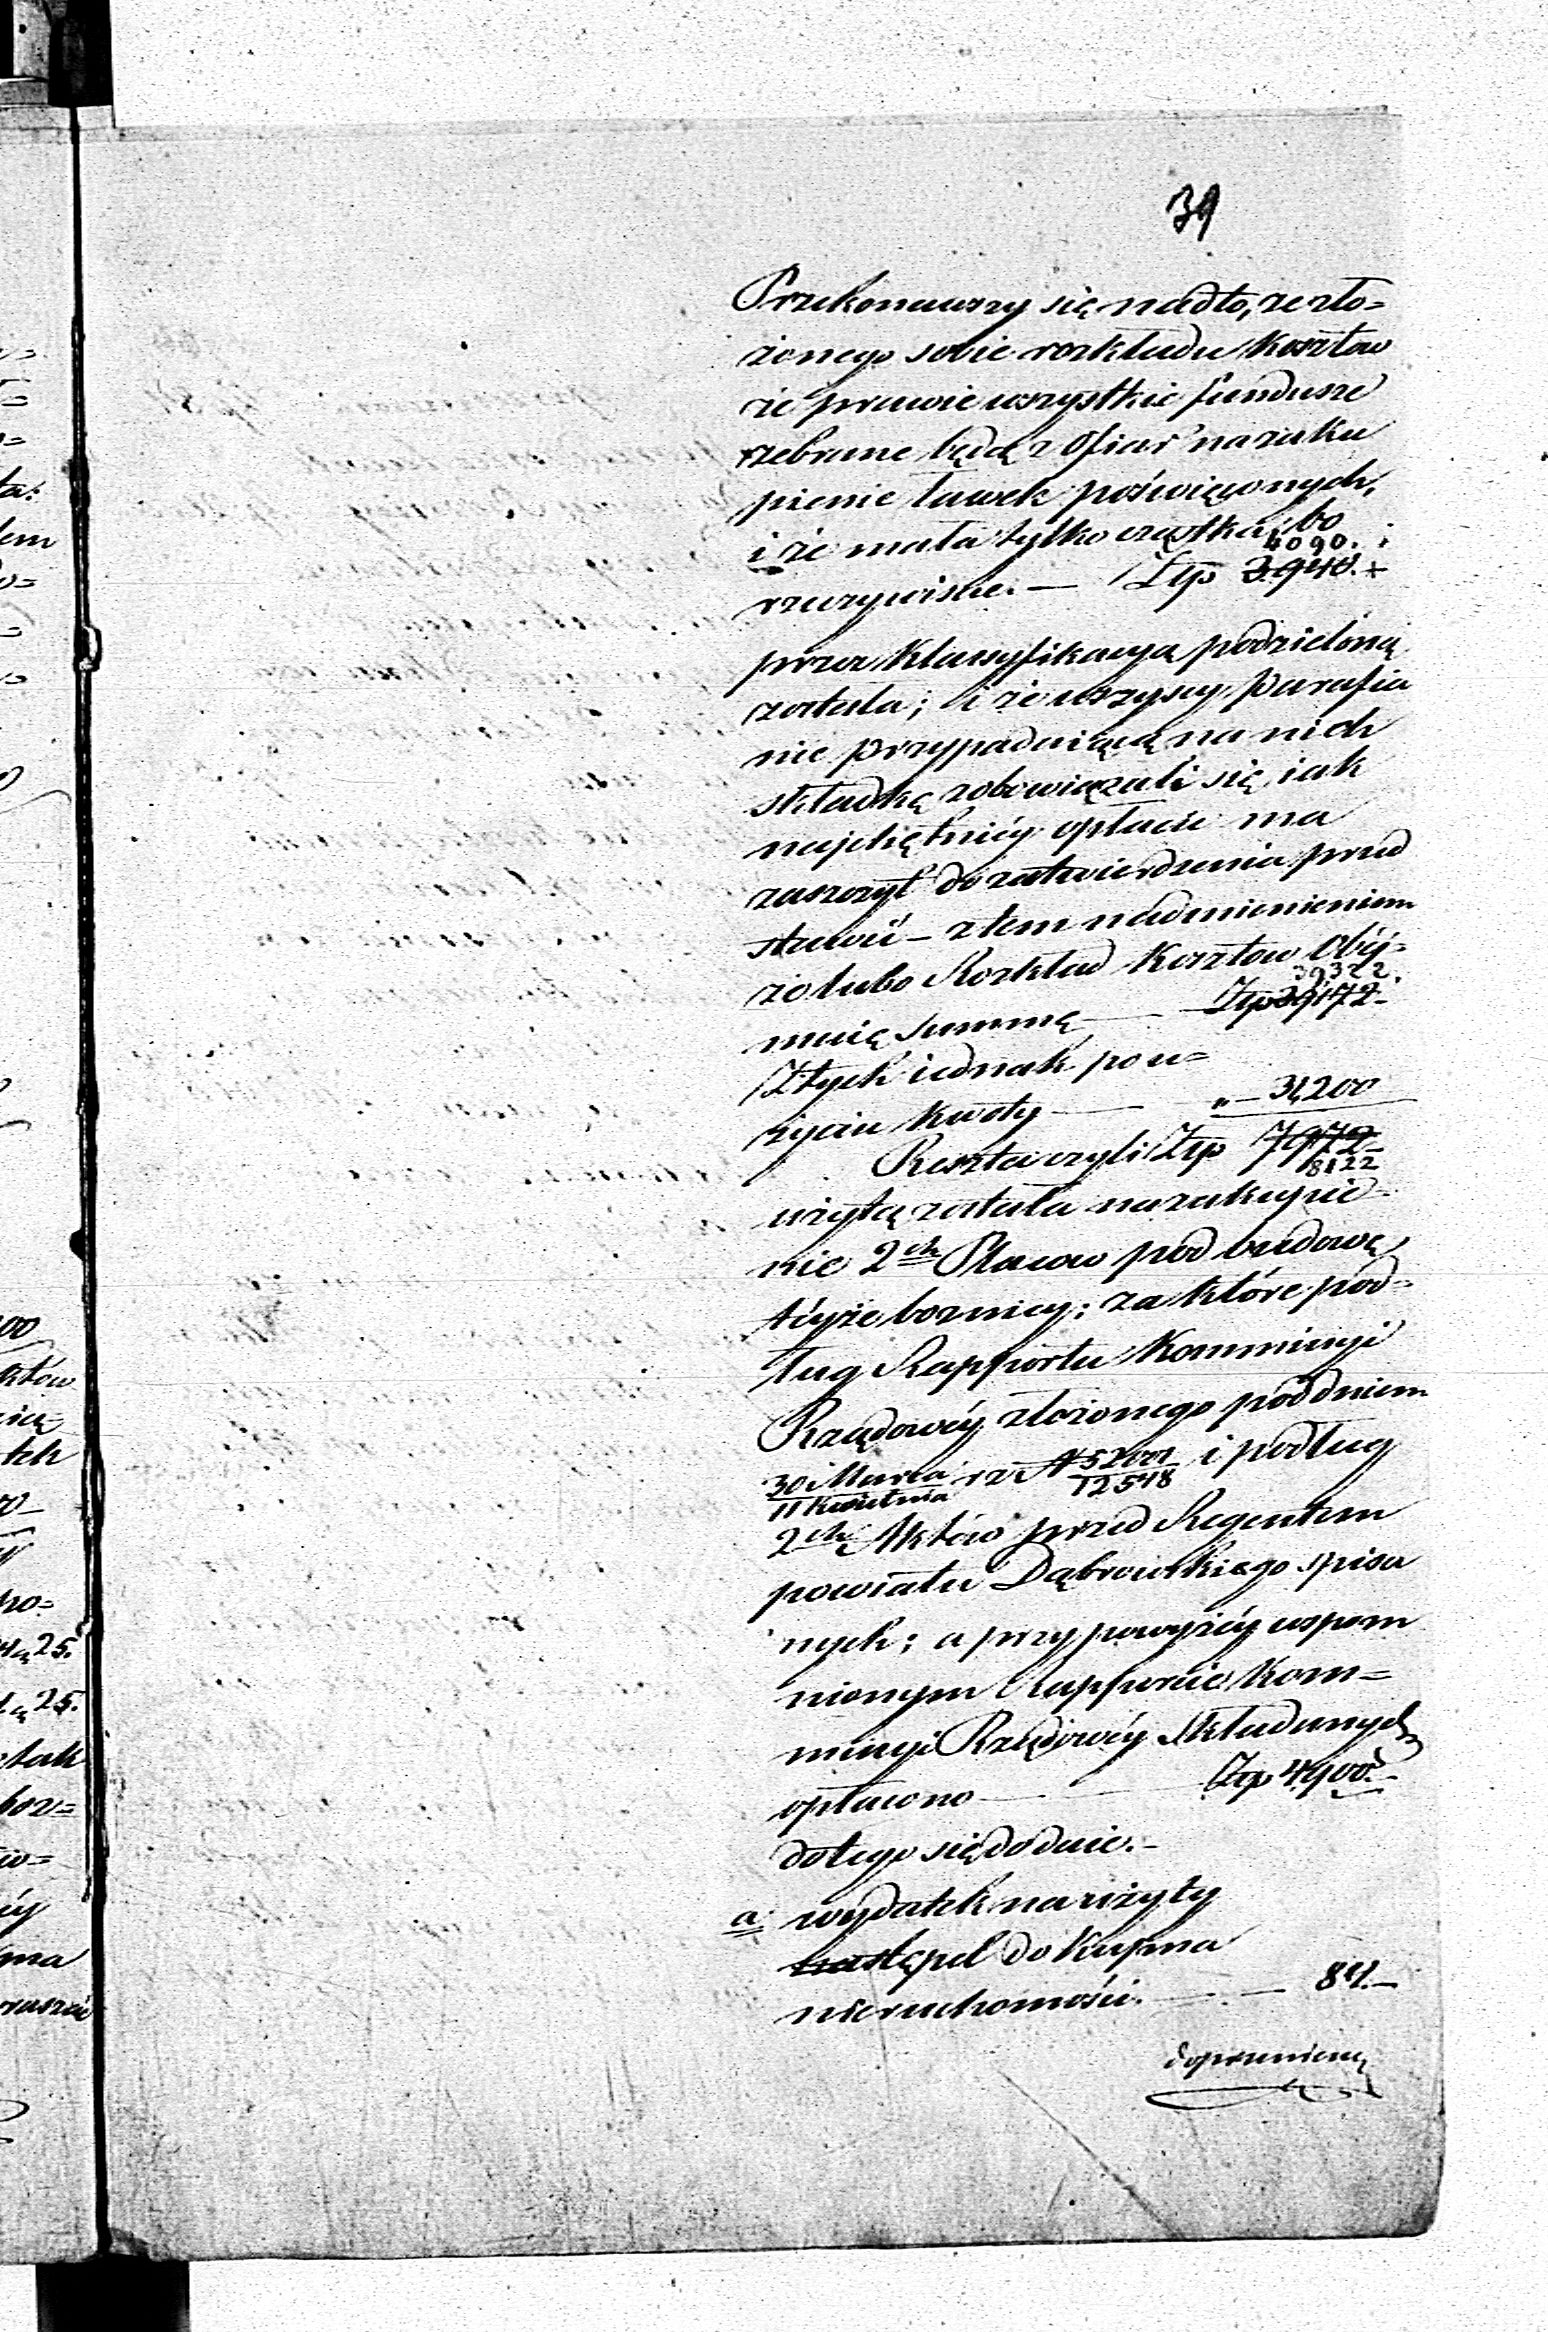 39
Przekonawszy się nadto, ze zło=
żonego sobie rozkładu kosztow
że prawie wszystkie fundusze
zebrane będą z Ofiar na zaku
pienie ławek poświęconych,
i że mała tylko cząstka; bo
4090.
rzeczywiście. — Złp 3940.
przez klassyfikacyą podzieloną
została; i że wszyscy Parafia
nie przypadaiącą na nich
składkę zobowiązali się, iak
najchętnićy opłacić ma
zaszczyt do zatwierdzenia przed
stawić – z tem nadmienieniem
że lubo Rozkład kosztow obéy=
39322.
muię summę — Złp 39172.
Z tych iednak po u=
życiu kwoty — „ — 31,200
Reszta czyli Złp 7972
8122
użytą została na zakupie=
nie 2ch Placow pod budowę
téyże boznicy; za które pod=
ług Rapportu Kommissyi
Rządowéy złożonego pod dniem
30 Marca
11 Kwietnia
rz № 52002
12548
i podług
2ch Aktów przed Regentem
powiatu Dąbrowskiego spisa
nych; a przy powyżéy wspom
nionym Rapporcie Kom=
missyi Rządowéy składanych
opłacono — Złp 4900.
do tego się dodaie. –
a wydatek na użyty
stępel do kupna
nieruchomości. — 84. –
do przeniesą
ta:
00
któw
25.
25.
tak
boz=
ma